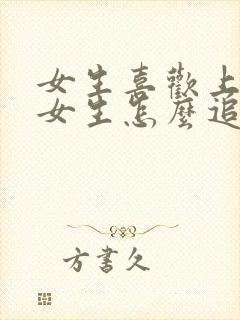 女生喜歡上
女生怎麼追
方書久